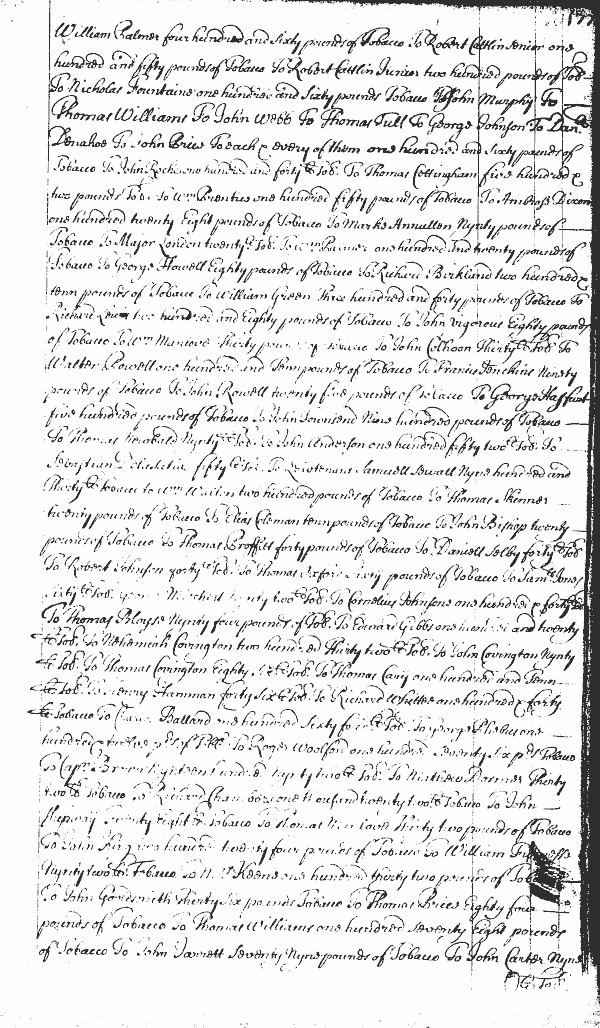 William Palmer four hundred and Sixty pounds of Tobacco To Robert Catlin Senior one
hundred and fifty pounds of Tobacco To Robert Catlin Junior two hundred pounds of Tob
To Nicholas Fountaine one hundred and Sixty pounds Tobacco To John Murphy To
Thomas Williams To John Webb To Thomas Tull To George Johnson To Dan
Denahoe To John Brice To each & every of them one hundred and Sixty pounds of
Tobacco To John Roche one hundred and forty Tob. To Thomas Cottingham five hundred &
two pounds Tob. To Wm Prentice one hundred fifty pounds of Tobacco To Ambross Dixon
one hundred twenty Eight pounds of Tobacco To Marke Annullen Nynty pounds of
Tobacco To Major London twenty Tob. To Wm Palmer one hundred and twenty pounds of
Tobacco To George Howell Eighty pounds of Tobacco To Richard Birkland two hundred &
tenn pounds of Tobacco To William Green Three hundred and forty pounds of Tobacco to
Richard two hundred and Eighty pounds of Tobacco To John Vigorous Eighty pounds
of Tobacco To Wm Manlove Thirty pounds of Tobacco To John Colhoon Thirty Tob To
Walter Powell one hundred and Tenn pounds of Tobacco To Francis Jenckins Ninety
pounds of Tobacco To John Rowell twenty five pounds of Tobacco To George Hassurt
five hundred pounds of Tobacco To John Townsend Nine hundred pounds of Tobacco
To Thomas Newbold Nynty Tob. To John Anderson one hundred fifty two Tob. To
Sebastian fifty Tob. To Lieutenant Samuell Sewall Nyne hundred and
Thirty Tobacco to Wm two hundred pounds of Tobacco To Thomas Skomer
twenty pounds of Tobacco To Elias Coleman tenn pounds of Tobacco To John Bishop twenty
pounds of Tobacco To Thomas Proffitt forty pounds of Tobacco To Daniell Selby forty Tob
To Robert Johnson forty Tob. To Thomas Oxford Sixty pounds of Tobacco To Saml Jones
Sixty Tob. George Mitchell twenty two Tob. To Cornelius Johnsone one hundred & forty
To Thomas Ployse Nynty four pounds of Tob. To Edward Gibbs one hundred and twenty
Tob. To Nehemiah Covington two hundred Thirty two Tob. To John Covington Nynty
Tob. To Thomas Covington Eighty Six Tob. To Thomas Cary one hundred and Tenn
Tob. To Henry Hamman forty Six Tob. To Richard Whittee one hundred & forty
Tobacco To Ballard one hundred Sixty four Tob. To George Phebus one
hundred & twelve pds of Tob To Roger Woolford one hundred Seventy Six pds Tobacco
To Capn Eighteen hundred two Tob. To Mathew Dormer Thirty
two Tobacco To Richard Chambers one thousand twenty two Tobacco To John
Shipway Twenty Eight Tobacco To Thomas Manlove Thirty two pounds of Tobacco
To John King two hundred twenty four pounds of Tobacco To William
Nynty two Tobacco To Wm Keene one hundred thirty two pounds of Tob
To John Gouldsmith thirty Six pounds Tobacco To Thomas Brice Eighty four
pounds of Tobacco To Thomas Williams one hundred Seventy Eight pounds
of Tobacco To John Jarrett Seventy Nyne pounds of Tobacco To John Carter Nyne
Tob.